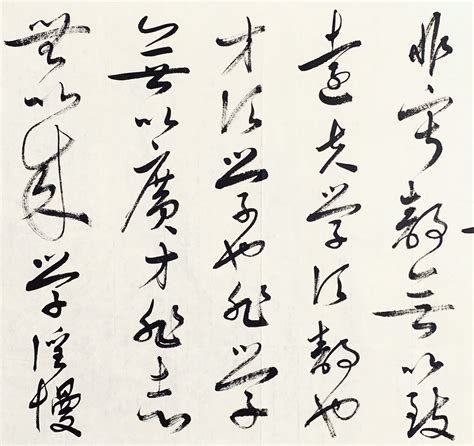 非寧靜無以致
遠夫學須靜也
才須學也非學
無以廣才非志
無以成學淫慢